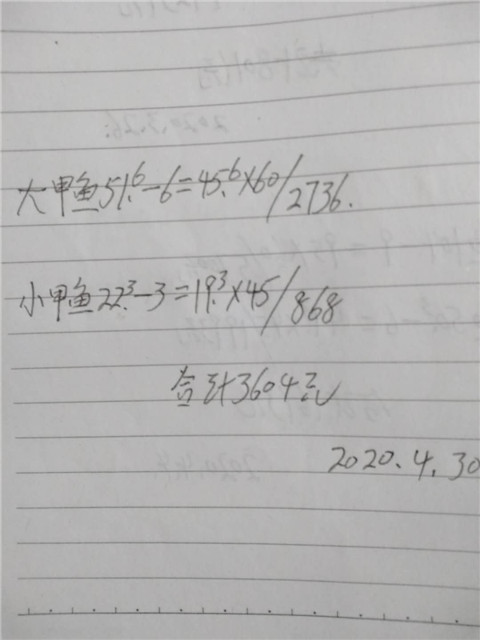 大甲鱼51.6-6=45.6×60/2736.
小甲鱼22.3-3=19.3×45/868
合计3604元
2020.4.30